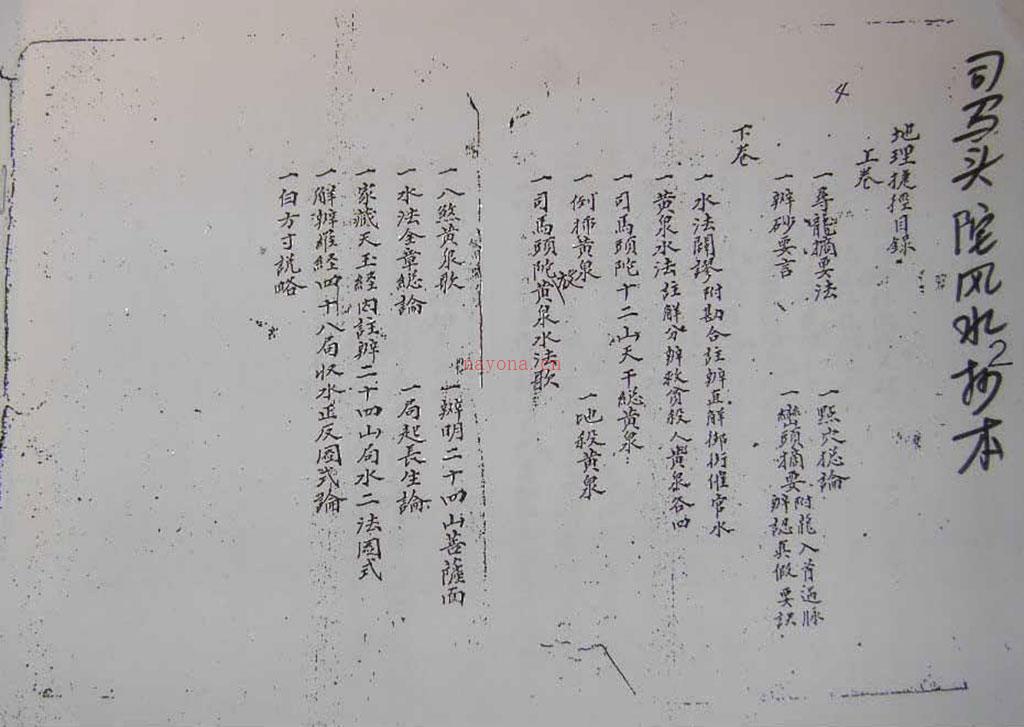 司马头陀风水抄本
2
地理捷徑目錄
上卷
一尋龍摘要法 一點穴總論
一辦砂要言 一巒頭摘要附龍入首過脉辦認真假要訣
4
下卷
一水法闢謬附勘合註辦直解御街催官水
一黃泉水法註解分辦救貧殺人黃泉各四
一司馬頭陀十二山天干總黃泉
一例 黃泉 一地殺黃泉
一司馬頭陀黃泉水法歌
一八煞黃泉歌 一辦明二十四山菩薩面
一水法全章總論 一局起長生論
一家藏天玉經內註辦二十四山局水二法圖式
一解辦羅經四十八局收水正反圖式論
一白方寸説略
nayona.cn